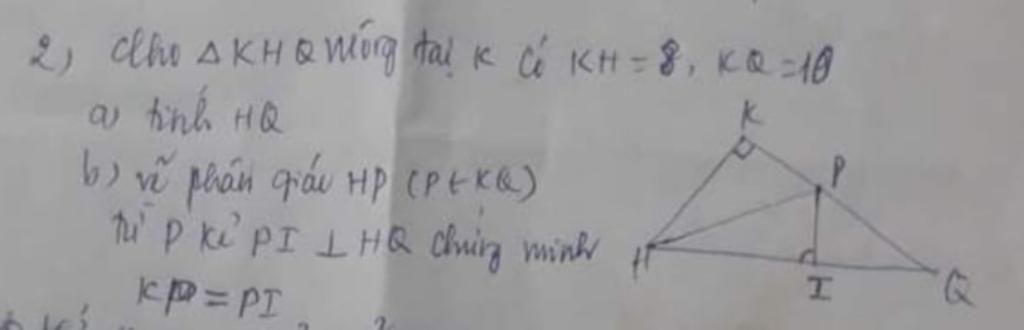 2) Cho △KHQ vuông tại K có KH = 8, KQ = 10
a) tính HQ
b) vẽ phân giác HP (P ∈ KQ)
từ P kẻ PI ⊥ HQ chứng minh
KP = PI
K
P
H
I
Q